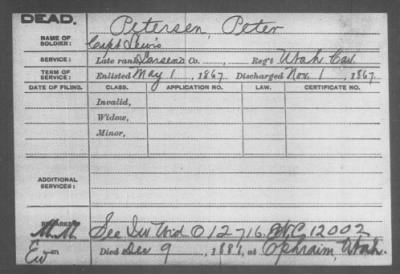 DEAD.
NAME OF SOLDIER: Petersen, Peter
Capt Lewis
SERVICE: Late rank Larsen's Co., Reg't Utah Cav.
TERM OF SERVICE: Enlisted May 1, 1867. Discharged Nov. 1, 1867
DATE OF FILING. CLASS. APPLICATION NO. LAW. CERTIFICATE NO.
Invalid,
Widow,
Minor,
ADDITIONAL SERVICES:
REMARKS: See Ind Wid O 12716. 12002
Died Dec 9, 188, at Ephraim, Utah.